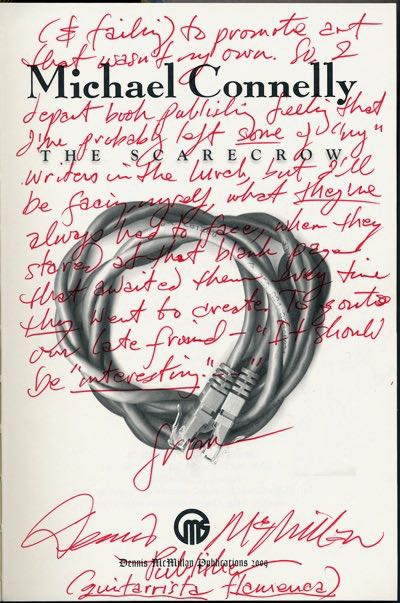 (& failing) to promote art
that wasn't my own. So, I
Michael Connelly
depart book publishing feeling that
I've probably left some of "my"
THE SCARECROW
writers in the lurch, but I'll
be facing myself, what they've
always had to face, when they
stared at that blank page
that awaited them every time
they went to create. To quote
our late friend — "It should
be "interesting." — "
from
Dennis McMillan
Dennis McMillan Publications 2009
Publisher
(guitarrista flamenca)